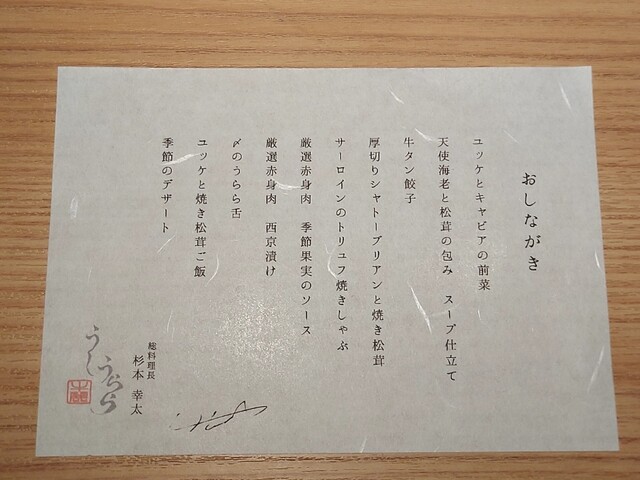 おしながき
ユッケとキャビアの前菜
天使海老と松茸の包み　スープ仕立て
牛タン餃子
厚切りシャトーブリアンと焼き松茸
サーロインのトリュフ焼きしゃぶ
厳選赤身肉　季節果実のソース
厳選赤身肉　西京漬け
〆のうらら舌
ユッケと焼き松茸ご飯
季節のデザート
総料理長
杉本 幸太
うしうらら